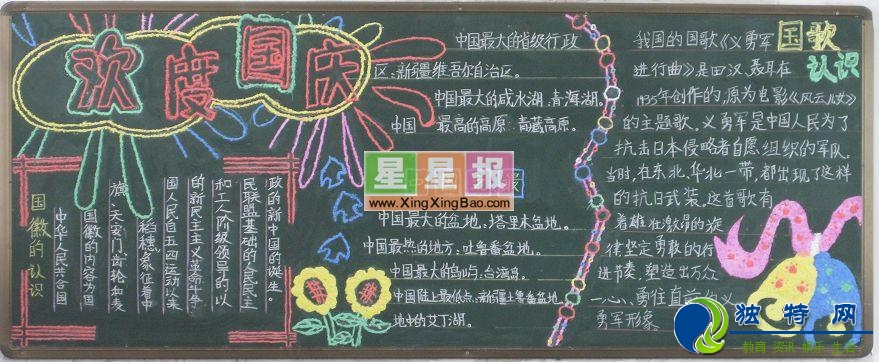 欢度国庆
中国最大的省级行政
区、新疆维吾尔自治区。
中国最大的咸水湖、青海湖。
中国 最高的高原 青藏高原。
中国最大的盆地、塔里木盆地。
中国最热的地方、吐鲁番盆地。
中国最大的岛屿、台湾岛。
中国陆上最低点、新疆土鲁番盆地
地中的艾丁湖。
国歌
认识
我国的国歌《义勇军
进行曲》是田汉、聂耳在
1935年创作的,原为电影《风云儿女》
的主题歌。义勇军是中国人民为了
抗击日本侵略者自愿组织的军队。
当时,在东北、华北一带,都出现了这样
的抗日武装、这首歌有
着雄壮激昂的旋
律坚定勇敢的行
进节奏,塑造出万众
一心、勇往直前的义
勇军形象
国徽的认识
中华人民共合国
国徽的内容为国
旗、天安门、齿轮和麦
稻穗,象征着中
国人民自五四运动以来
的新民主主义革命斗争
和工人阶级领导的以
民联盟基础的人民民主
政的新中国的诞生。
星星报
www.XingXingBao.com
独特网
教育 资讯 娱乐 生活